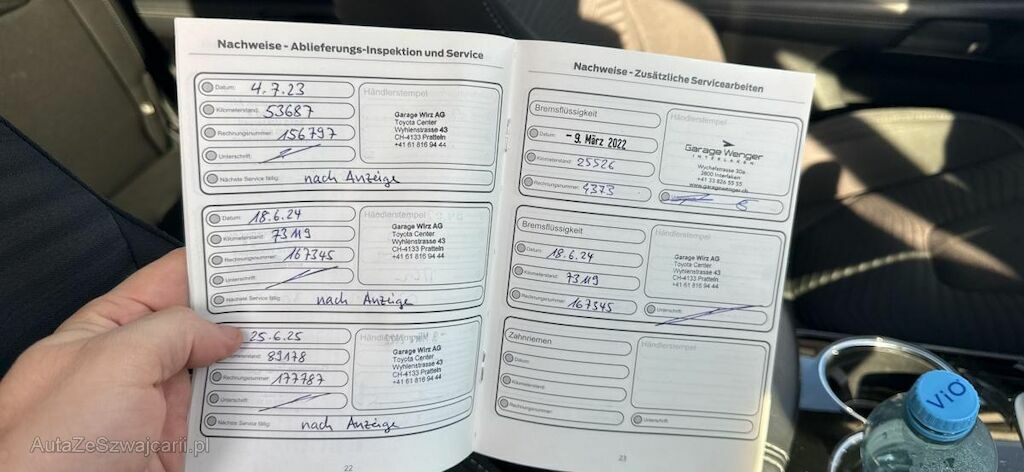 Nachweise - Ablieferungs-Inspektion und Service
Datum: 4.7.23
Kilometerstand: 53687
Rechnungsnummer: 156797
Unterschrift:
Nächste Service fällig: nach Anzeige
Händlerstempel
Garage Wirz AG
Toyota Center
Wyhlenstrasse 43
CH-4133 Pratteln
+41 61 816 94 44
Datum: 18.6.24
Kilometerstand: 73119
Rechnungsnummer: 167345
Unterschrift:
Nächste Service fällig: nach Anzeige
Händlerstempel
Garage Wirz AG
Toyota Center
Wyhlenstrasse 43
CH-4133 Pratteln
+41 61 816 94 44
25.6.25
Kilometerstand: 89178
Rechnungsnummer: 177787
Unterschrift:
Nächste Service fällig: nach Anzeige
Händlerstempel
Garage Wirz AG
Toyota Center
Wyhlenstrasse 43
CH-4133 Pratteln
+41 61 816 94 44
22
Nachweise - Zusätzliche Servicearbeiten
Bremsflüssigkeit
Datum: - 9. März 2022
Kilometerstand: 25526
Rechnungsnummer: 4373
Händlerstempel
Garage Wenger
INTERLAKEN
Wychelstrasse 30a
3800 Interlaken
+41 33 826 55 55
www.garagewenger.ch
Bremsflüssigkeit
Datum: 18.6.24
Kilometerstand: 73119
Rechnungsnummer: 167345
Händlerstempel
Garage Wirz AG
Toyota Center
Wyhlenstrasse 43
CH-4133 Pratteln
+41 61 816 94 44
Unterschrift:
Zahnriemen
Datum:
Kilometerstand:
Rechnungsnummer:
Händlerstempel
Unterschrift:
23
ViO
AutaZeSzwajcarii.pl